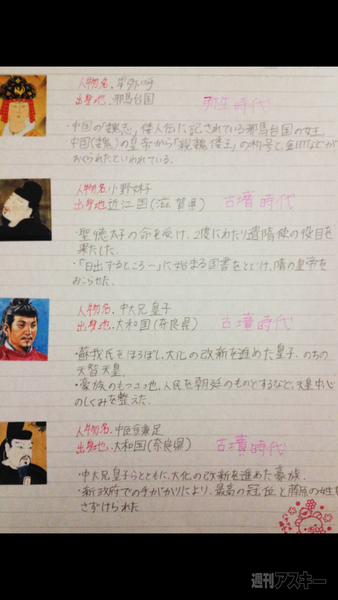 人物名、卑弥呼
出身地、邪馬台国
弥生時代
・中国の「魏志」倭人伝に記されている邪馬台国の女王。
中国(魏)の皇帝から「親魏倭王」の称号と金印などが
おくられたといわれている。
人物名、小野妹子
出身地、近江国(滋賀県)
古墳時代
・聖徳太子の命を受け、2度にわたり遣隋使の役目を
果たした。
・「日出ずるところ―」に始まる国書をとどけ、隋の皇帝を
おこらせた。
人物名、中大兄皇子
出身地、大和国(奈良県)
古墳時代
・蘇我氏をほろぼし、大化の改新を進めた皇子。のちの
天智天皇。
・豪族のもつ土地、人民を朝廷のものとするなど、天皇中心
のしくみを整えた。
人物名、中臣鎌足
出身地、大和国(奈良県)
古墳時代
・中大兄皇子らとともに、大化の改新を進めた豪族。
・新政府での手がかりにより、最高の冠位と藤原の姓を
さずけられた
週刊アスキー